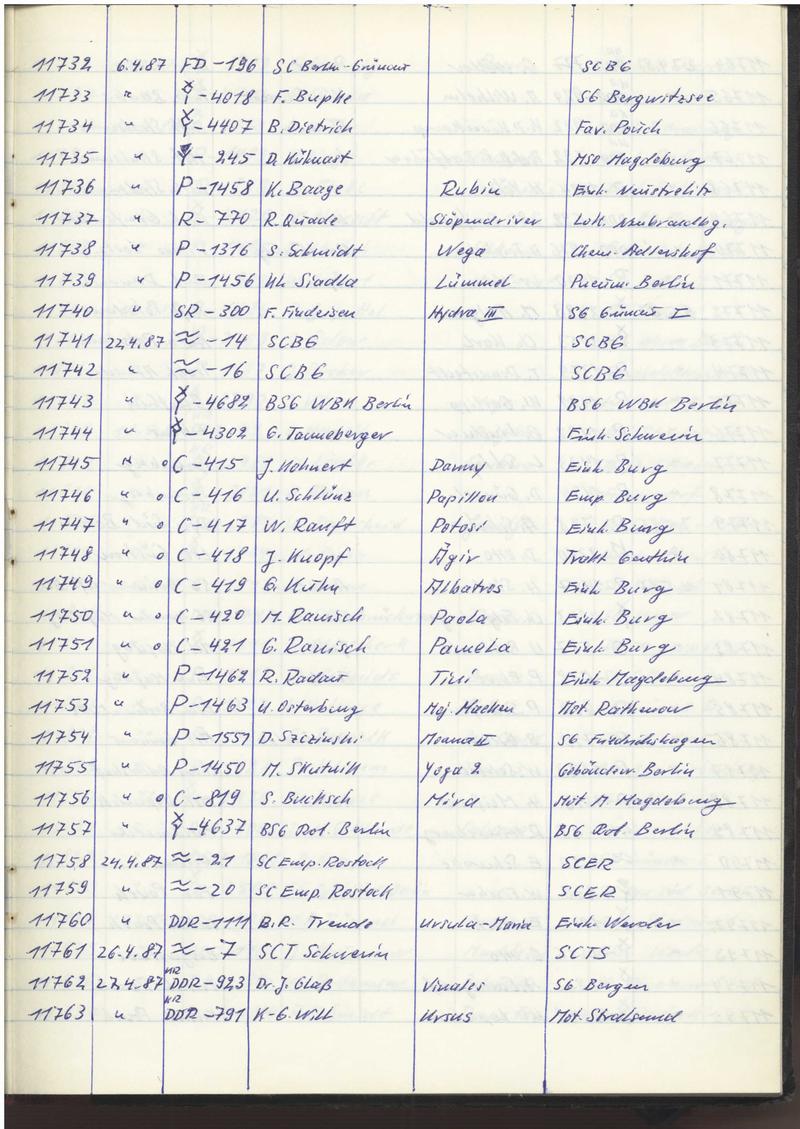 11732 6.4.87 FD-196 SC Berlin-Grünau SCBG
11733 " -4018 F. Bupke SG Bergwitzsee
11734 " -4407 B. Dietrich Fav. Pouch
11735 " -245 D. Kühnast MSO Magdeburg
11736 " P-1458 K. Baage Rubin Einh. Neustrelitz
11737 " R-770 R. Quade Slöpendriver Lok. Neubrandbg.
11738 " P-1316 S. Schmidt Wega Chem. Adlershof
11739 " P-1456 Siadla Lümmel Pneum. Berlin
11740 " SR-300 F. Findeisen Hydra III SG Grünau I
11741 22.4.87 ≈-14 SCBG SCBG
11742 " ≈-16 SCBG SCBG
11743 " -4682 BSG WBK Berlin BSG WBK Berlin
11744 " -4302 G. Tanneberger Einh. Schwerin
11745 " o C-415 J. Kohnert Danny Einh. Burg
11746 " o C-416 U. Schlünz Papillon Emp. Burg
11747 " o C-417 W. Ranft Potosi Einh. Burg
11748 " o C-418 J. Knopf Ägir Trakt Genthin
11749 " o C-419 G. Kühn Albatros Einh. Burg
11750 " o C-420 M. Ranisch Paola Einh. Burg
11751 " o C-421 G. Ranisch Pamela Einh. Burg
11752 " P-1462 R. Radau Tini Einh. Magdeburg
11753 " P-1463 U. Osterburg Moj. Machen Mot. Rathenow
11754 " P-1551 D. Szczinski II SG Friedrichshagen
11755 " P-1450 M. Skutnik Yoga 2 Gebäudew. Berlin
11756 " o C-819 S. Buchsch Mira Mot. M. Magdeburg
11757 " -4637 BSG Rot. Berlin BSG Rot. Berlin
11758 24.4.87 ≈-21 SC Emp. Rostock SCER
11759 " ≈-20 SC Emp. Rostock SCER
11760 " DDR-1111 B.R. Trende Ursula-Maria Einh. Werder
11761 26.4.87 ≈-7 SCT Schwerin SCTS
11762 27.4.87 DDR-923 Dr. J. Glaß Vinales SG Bergen
11763 " DDR-791 K-G. Witt Ursus Mot. Stralsund